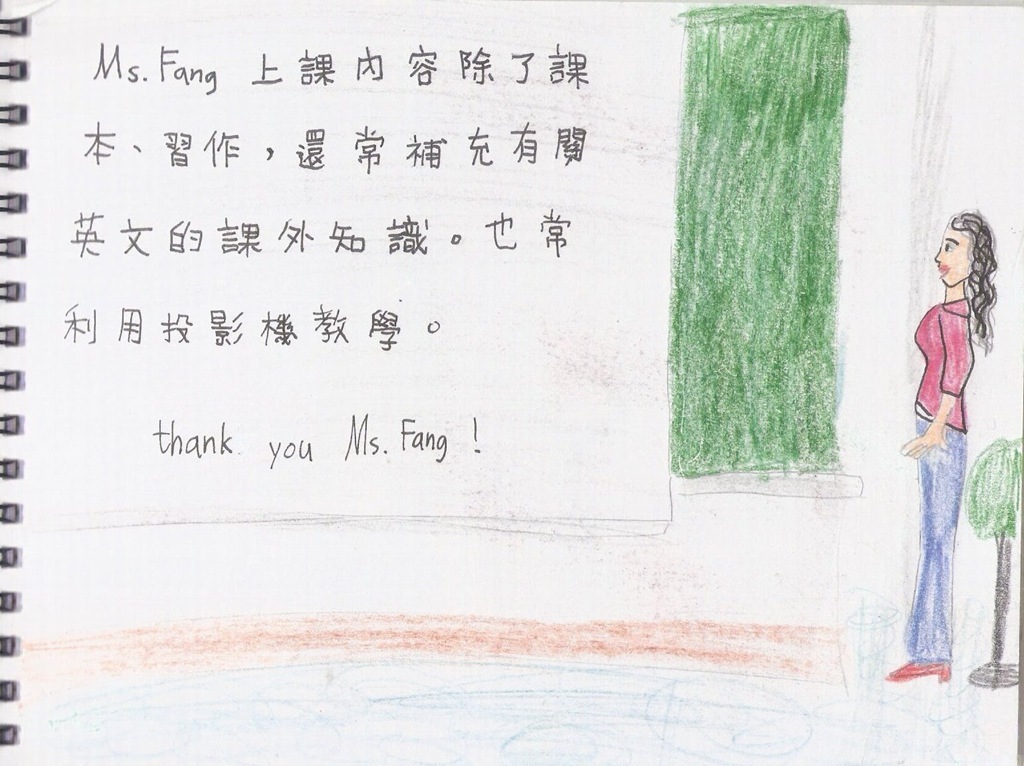 Ms. Fang 上課內容除了課
本、習作，還常補充有關
英文的課外知識。也常
利用投影機教學。
thank you Ms. Fang !